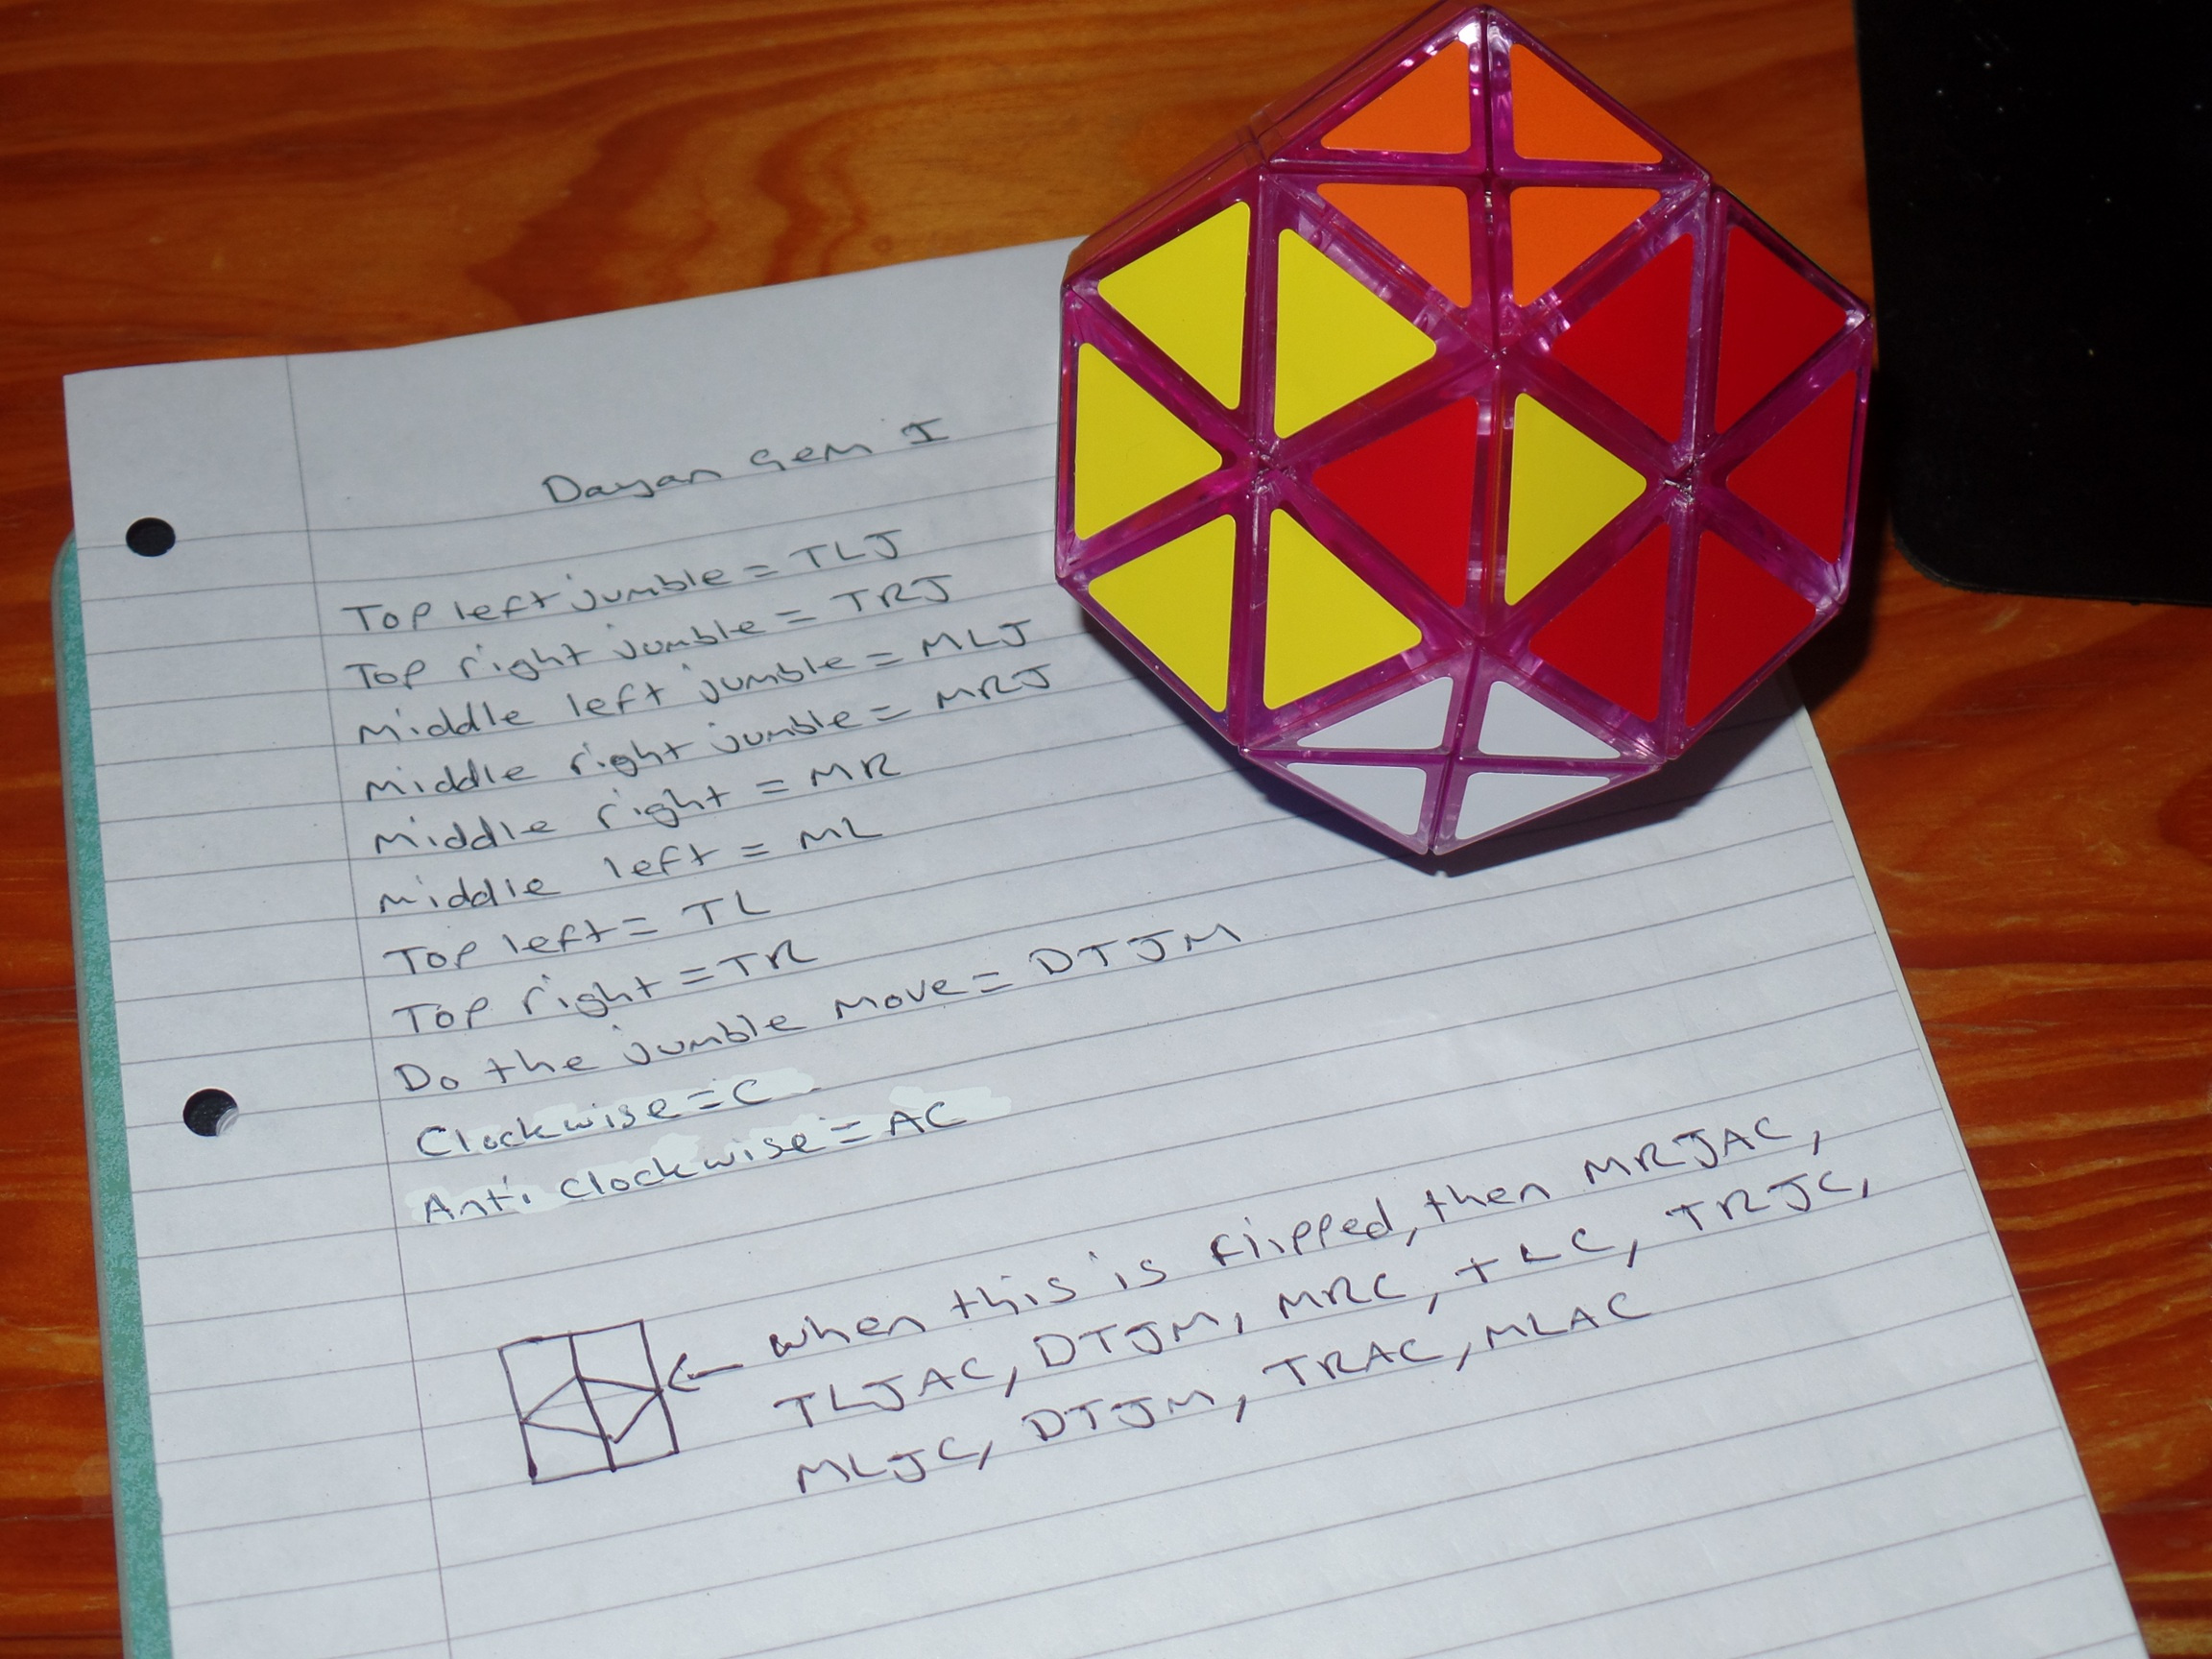 Dayan Gem I
Top left jumble = TLJ
Top right jumble = TRJ
Middle left jumble = MLJ
Middle right jumble = MRJ
Middle right = MR
Middle left = ML
Top left = TL
Top right = TR
Do the jumble move = DTJM
Clockwise = C
Anti clockwise = AC
← when this is flipped, then MRJAC,
TLJAC, DTJM, MRC, TLC, TRJC,
MLJC, DTJM, TRAC, MLAC